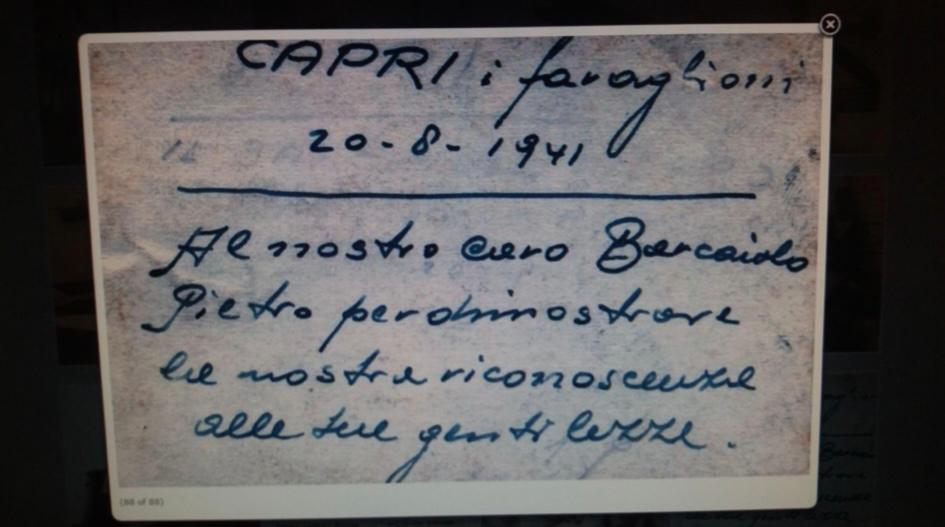 CAPRI i faraglioni
20-8-1941
Al nostro caro Barcaiolo
Pietro per dimostrare
la nostra riconoscenza
alle sue gentilezze.
(88 of 88)